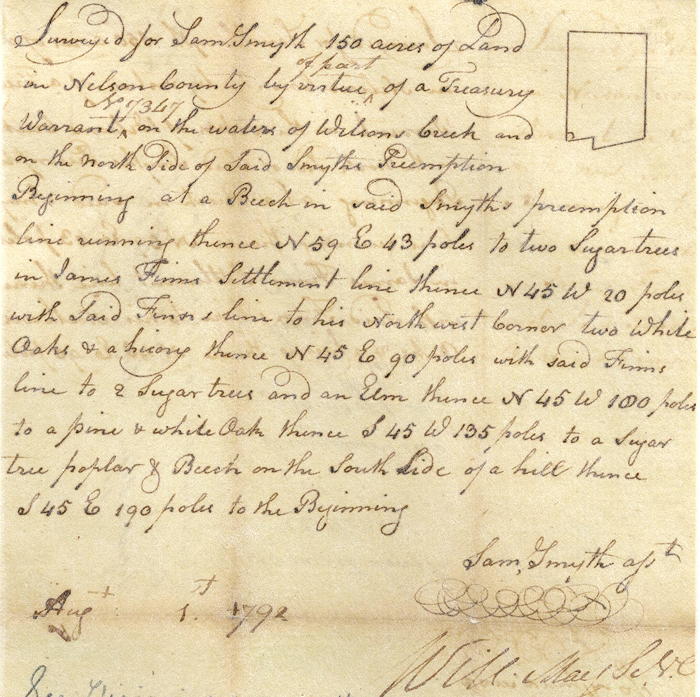 Surveyed for Sam. Smyth 150 acres of Land
of part
in Nelson County by virtue ^ of a Treasury
No 7347
Warrant ^ on the waters of Wilsons Creek and
on the north Side of Said Smyths Preemption
Beginning at a Beech in said Smyths preemption
line running thence N 59 E 43 poles to two Sugartrees
in James Finns Settlement line thence N 45 W 20 poles
with Said Finns line to his North west Corner two White
Oaks & a hicory thence N 45 E 90 poles with said Finns
line to 2 Sugar trees and an Elm thence N 45 W 180 poles
to a pine & white Oak thence S 45 W 135 poles to a Sugar
tree poplar & Beech on the South Side of a hill thence
S 45 E 190 poles to the Beginning
Sam. Smyth asst
Augt 1st 1792
Will. May S. N. C